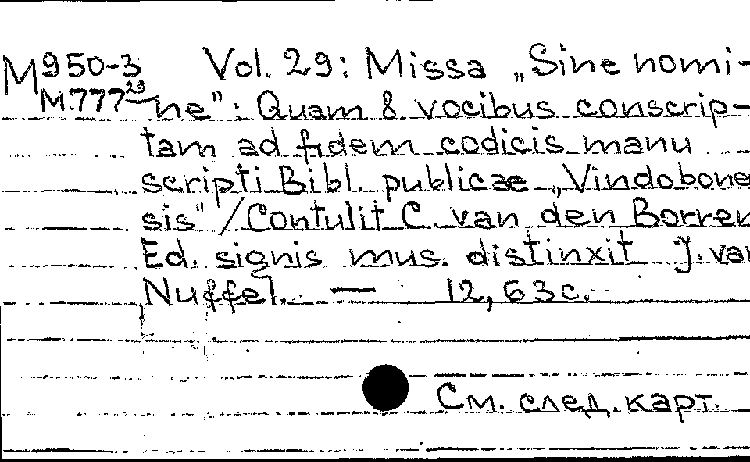 M950-3 Vol. 29: Missa „Sine nomi-
M.777²⁹ ne": Quam 8 vocibus conscrip-
tam ad fidem codicis manu
scripti Bibl. publicae „Vindobone
sis" / Contulit C. van den Borren
Ed. signis mus. distinxit J. van
Nuffel. — 12, 63 с.
См. след. карт.